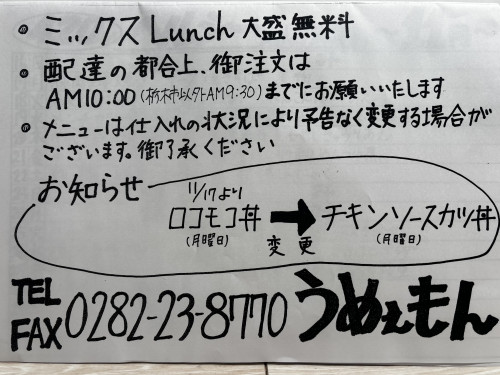 ・ミックスLunch大盛無料
・配達の都合上、御注文は
AM10:00(栃木市以外AM9:30)までにお願いいたします
・メニューは仕入れの状況により予告なく変更する場合が
ございます。御了承ください
お知らせ
11/17より
ロコモコ丼 ➡ チキンソースカツ丼
(月曜日) 変更 (月曜日)
TEL
FAX 0282-23-8770 うめぇもん